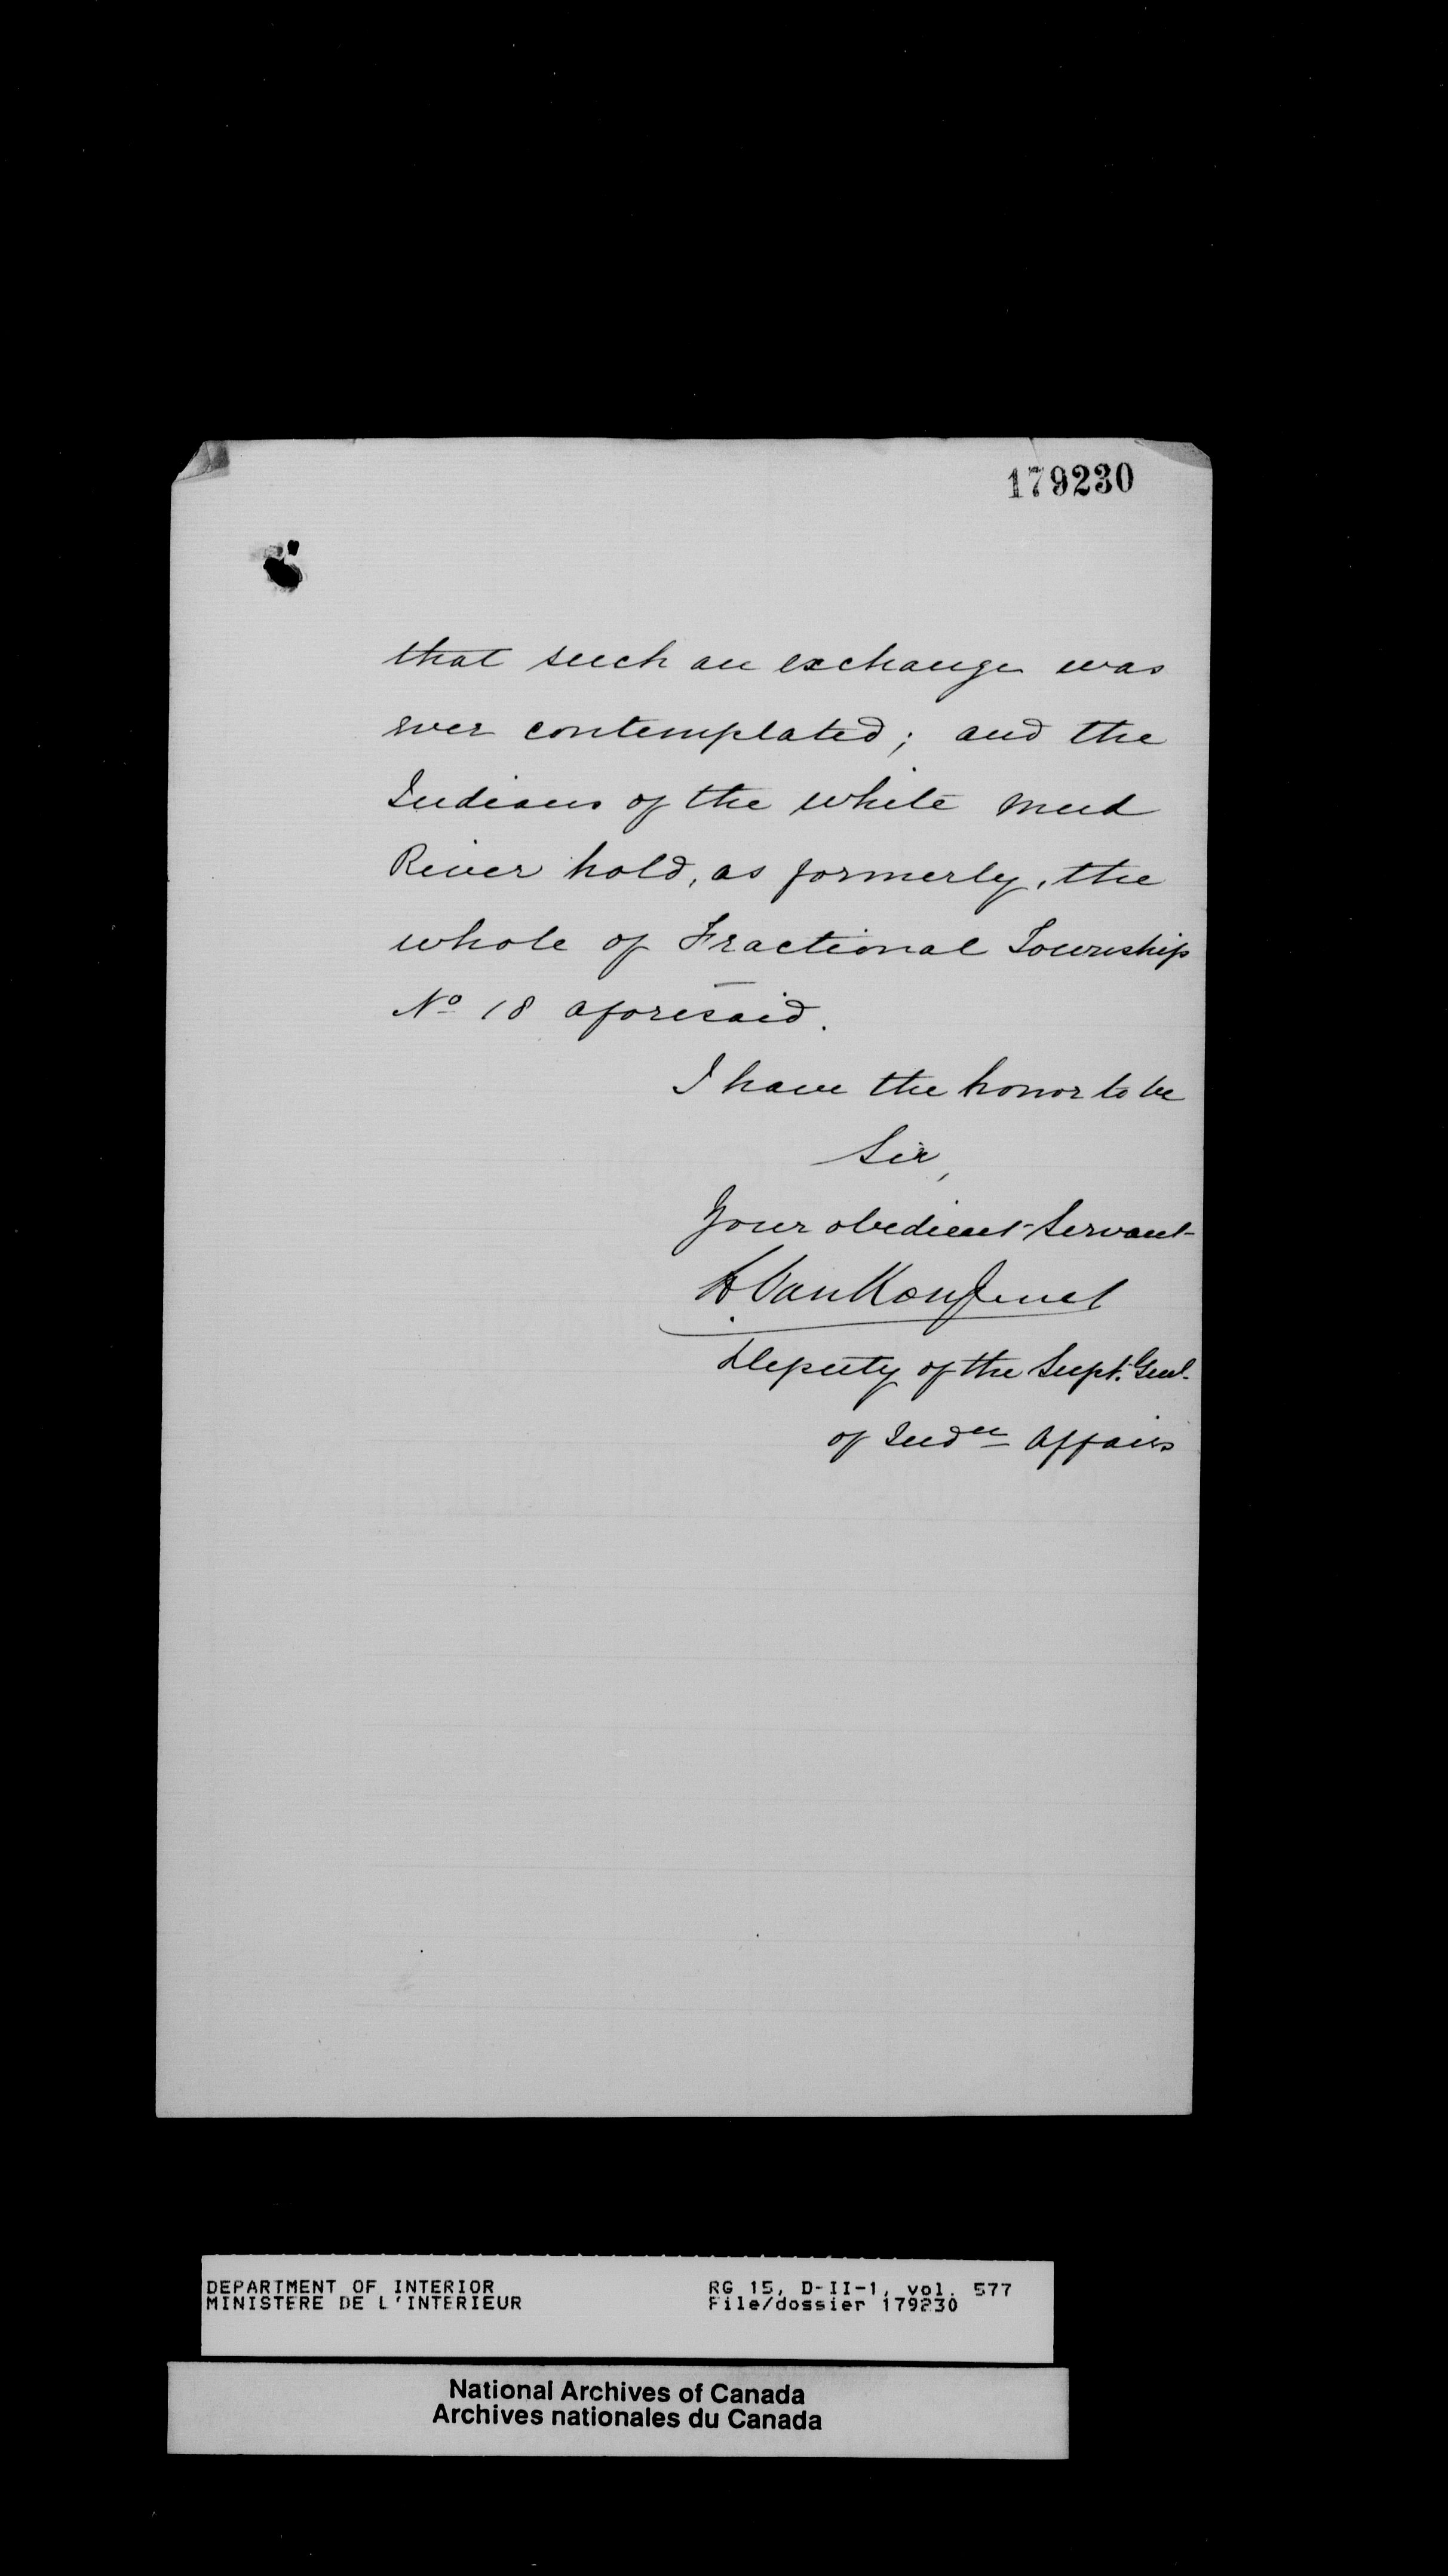 179230
that such an exchange was
ever contemplated; and the
Indians of the white mud
River hold, as formerly, the
whole of Fractional Township
No 18 aforesaid.
I have the honor to be
Sir,
Your obedient Servant
L. VanKoughnet
Deputy of the Supt. Genl.
of Indn Affairs
DEPARTMENT OF INTERIOR
MINISTERE DE L'INTERIEUR
RG 15, D-II-1, vol. 577
File/dossier 179230
National Archives of Canada
Archives nationales du Canada